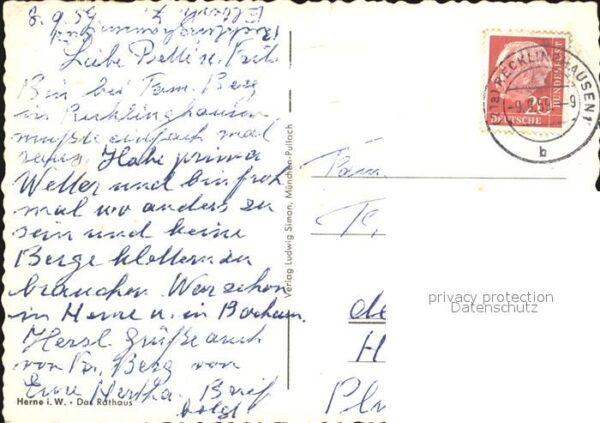 8.9.59
Liebe Betti u. Fritz
Bin bei Fam. Berg
in Recklinghausen
mußte einfach mal
raus. Habe prima
Wetter und bin froh
mal wo anders zu
sein und keine
Berge klettern zu
brauchen. War schon
in Herne u. in Bochum.
Herzl. Grüße auch
von Fr. Berg von
Eure Hertha. Brief
folgt
Herne i. W. • Das Rathaus
Verlag Ludwig Simon, München-Pullach
RECKLINGHAUSEN 1
b
20
DEUTSCHE
BUNDESPOST
Fam.
privacy protection
Datenschutz